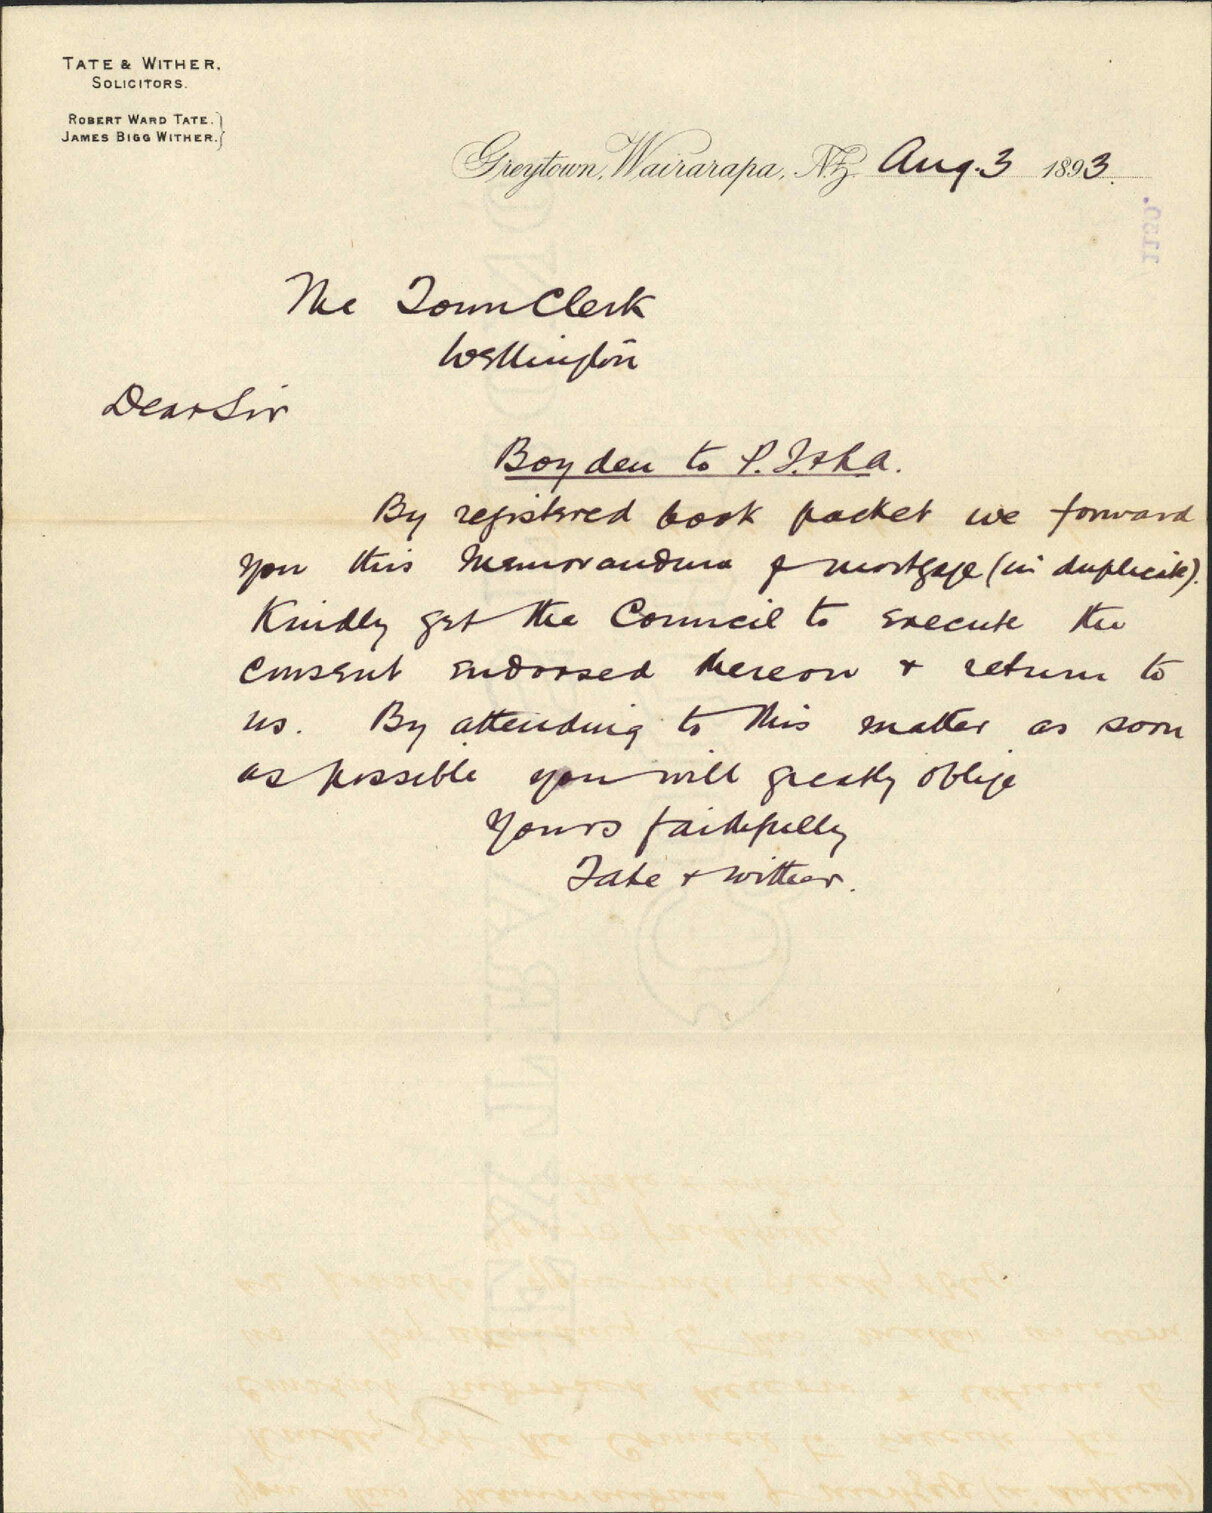 TATE & WITHER.
SOLICITORS.
ROBERT WARD TATE.
JAMES BIGG WITHER.
Greytown, Wairarapa, N.Z. Aug. 3 1893.
The Town Clerk
Wellington
Dear Sir
Boyden to P.
By registered book packet we forward
you this Memorandum of mortgage (in duplicate).
Kindly get the Council to execute the
consent endorsed thereon & return to
us. By attending to this matter as soon
as possible you will greatly oblige
Yours faithfully
Tate & Wither.